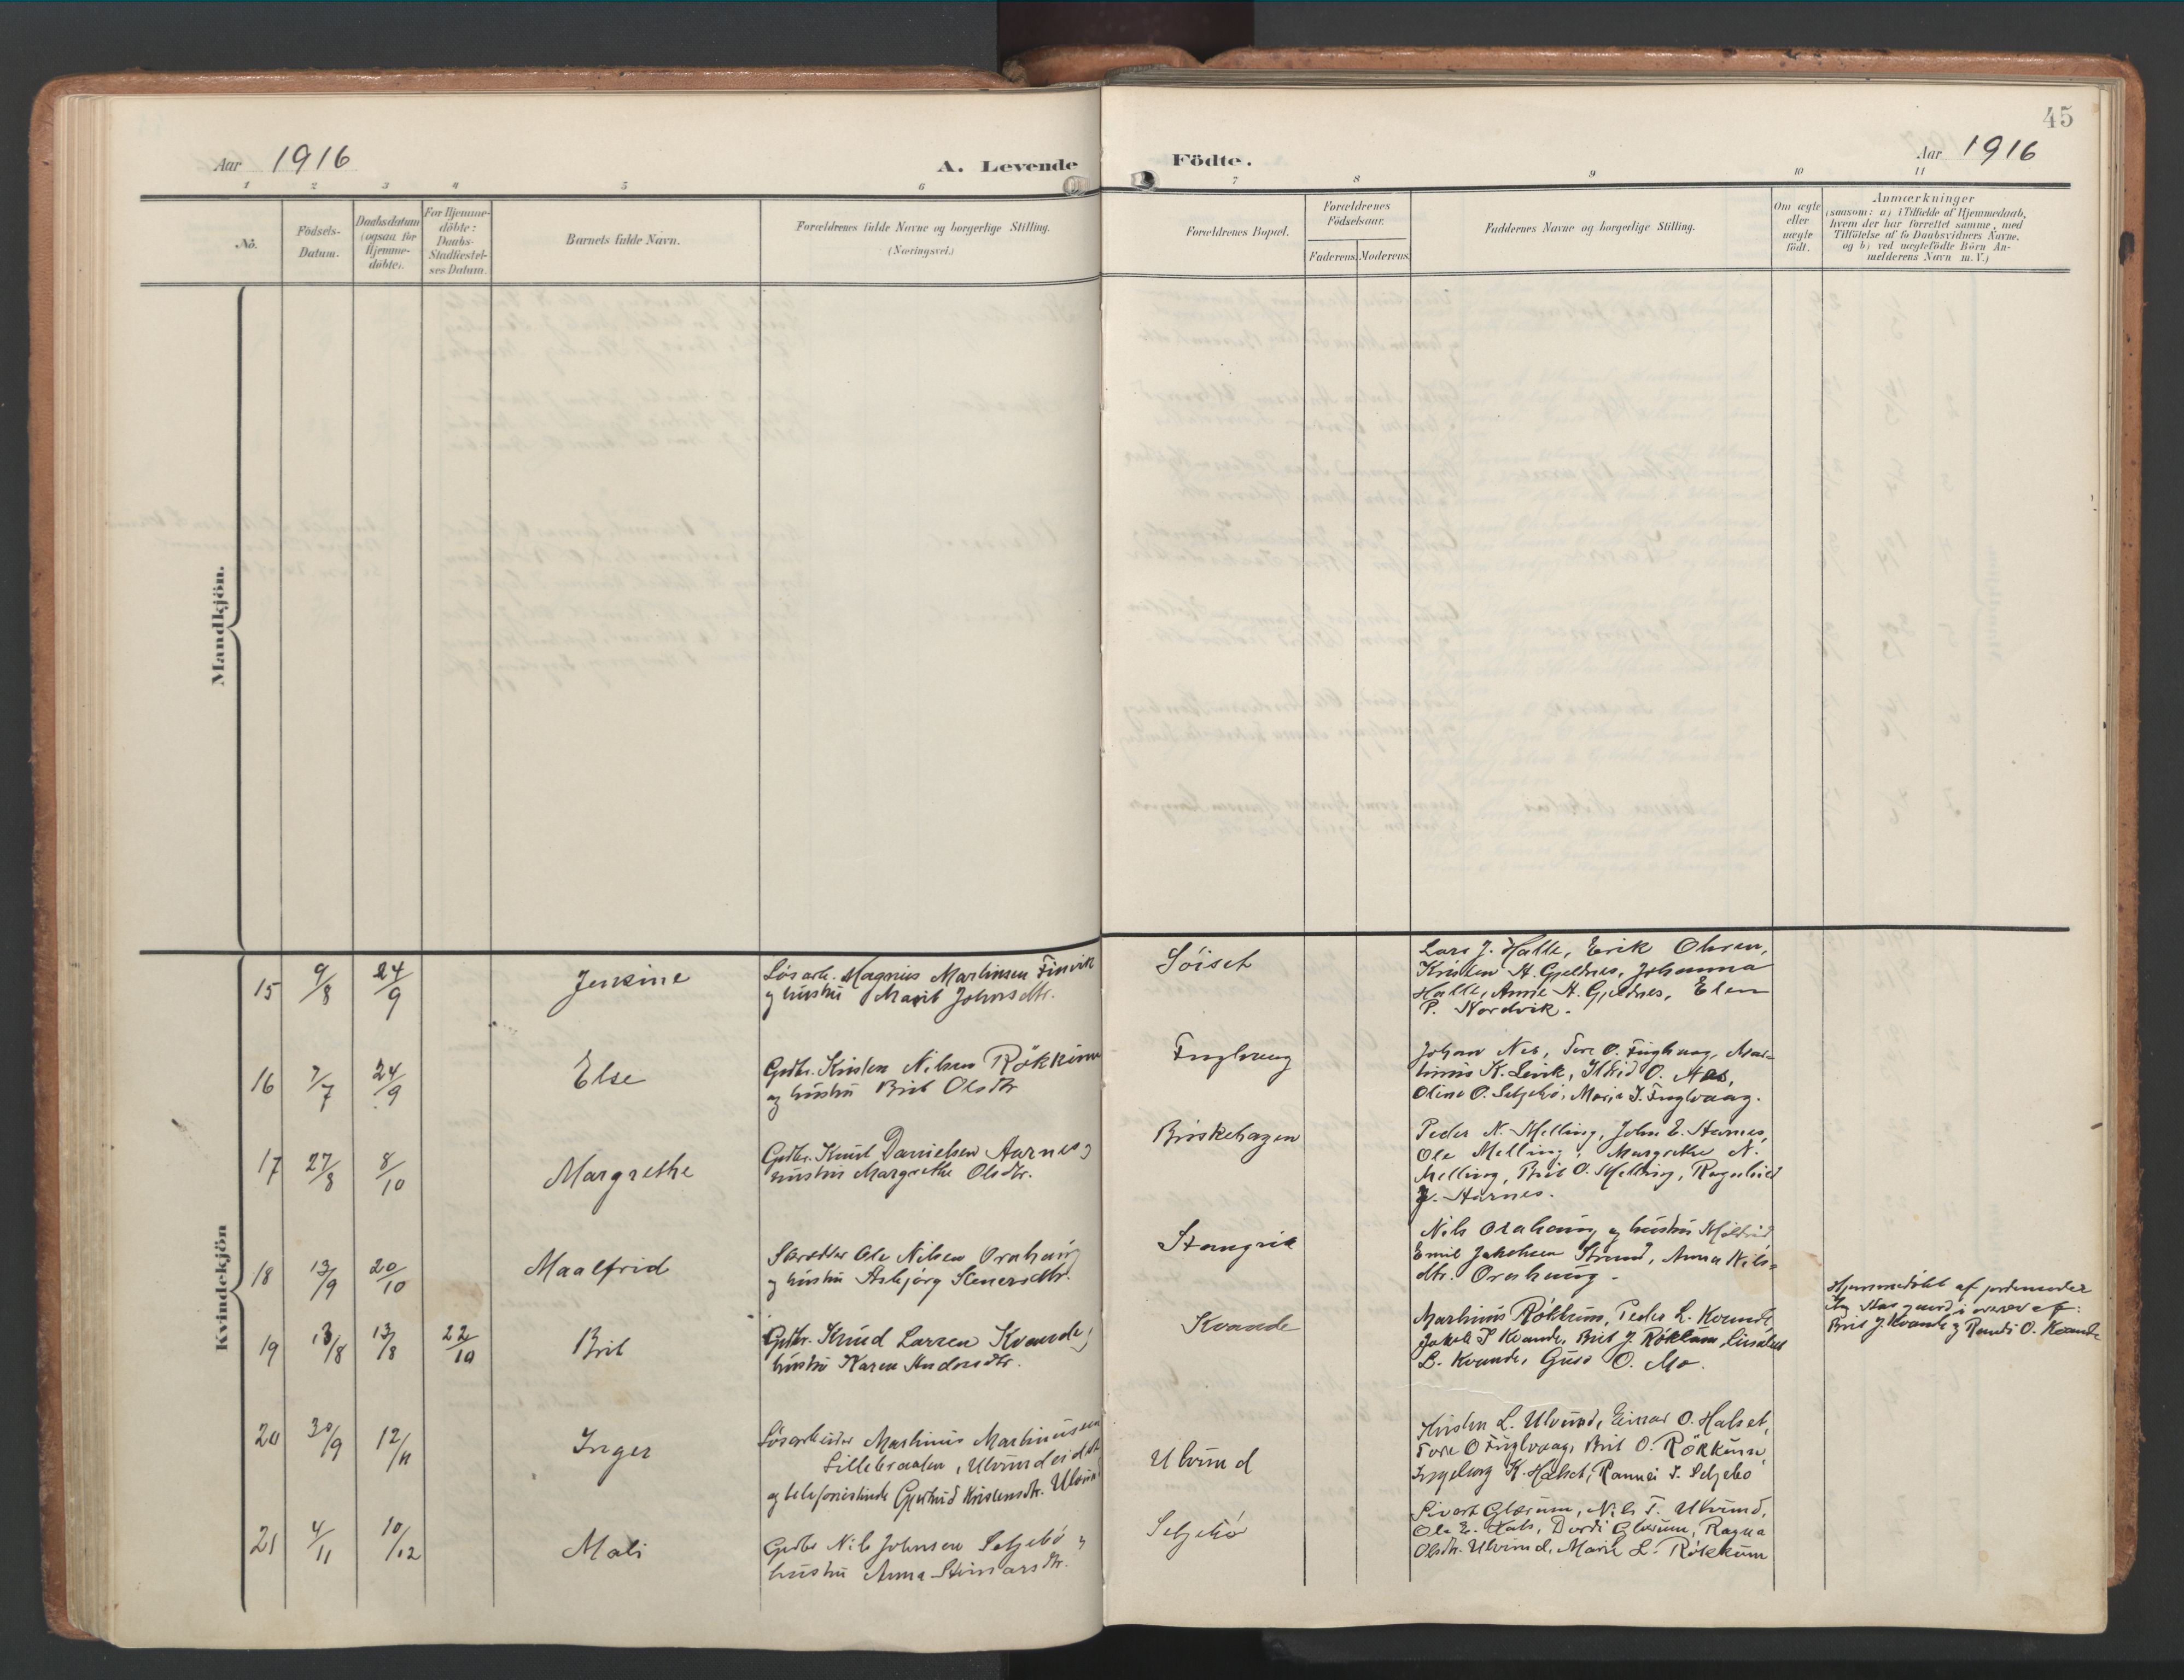 45
Aar 1916
A. Levende
Födte.
Aar 1916
1 2 3 4 5 6 7 8 9 10 11
No.
Födsels-
Datum.
Daabsdatum
(ogsaa for
Hjemme-
döbte).
For Hjemme-
döbte:
Daabs-
Stadfæstel-
ses Datum.
Barnets fulde Navn.
Forældrenes fulde Navne og borgerlige Stilling.
(Næringsvei.)
Forældrenes Bopæl.
Forældrenes
Födselsaar.
Faderens. Moderens.
Faddernes Navne og borgerlige Stilling.
Om ægte
eller
uægte
født.
Anmærkninger
(saasom: a) i Tilfælde af Hjemmedaab,
hvem der har forrettet samme, med
Tilföielse af to Daabsvidners Navne.
og b) ved uægtefödte Börn An-
melderens Navn m. V.)
Mandkjön.
Kvindekjön
15 9/8 24/9 Jensine
Lösarb. Magnus Martinsen Finvik
og hustru Marit Johnsdtr.
Söiset
Lars J. Halle, Erik Ohren,
Kristen A. Gjeldnes, Johanna
Halle, Anne A. Gjeldnes, Elen
P. Nordvik.
16 7/7 24/9 Else
Gardbr. Kristen Nilsen Rökkum
og hustru Brit Olsdtr
Fuglvaag
Johan Nes, Tore O. Fuglvaag, Mar-
tinus K. Lervik, Ildrid O. Nes,
Oline O. Seljebö, Marie J. Fuglvaag.
17 27/8 8/10 Margrethe
Gardbr. Knut Danielsen Aarnes og
hustru Margrethe Olsdtr.
Birskehagen
Peder N. Melling, John E. Aarnes,
Ole Melling, Margrethe N.
Melling, Brit O. Melling, Ragnhild
J. Aarnes.
18 13/9 20/10 Maalfrid
Ole Nilsen Orahaug
og hustru Asbjörg Steinersdtr.
Stangvik
Nils Orahaug og hustru Målfrid
Emil Jakobsen Strand, Anna Nils-
dtr. Orahaug.
19 13/8 13/8 22/10 Brit
Gardbr. Knud Larsen Kvande og
hustru Karen Andersdtr.
Kvande
Martinus Rökkum, Peder L. Kvande,
Jakob P. Kvande, Brit J. Rökkum, Elisabet
L. Kvande, Guro O. Mo.
Hjemmedöbt af jordemoder
overvær af:
Brit J. Kvande og Randi O. Kvande
20 30/9 12/11 Inger
Lösarbeider Martinus Martinussen
Lillebraaten, Ulvundeidet
og telefonistinde Gjertrud Kristensdtr. Ulvund
Ulvund
Kristen L. Ulvund, Einar O. Halset,
Tore O Fuglvaag, Brit O. Rökkum,
Ingeborg K. Halset, Rannei J. Seljebö
21 4/11 10/12 Mali
Gardbr Nils Johnsen Seljebö og
hustru Anna Steinarsdtr.
Seljebö
Sivert Glærum, Nils T. Ulvund,
Ole E. Hals, Dordi Glærum, Ragna
Olsdtr. Ulvund, Marit L. Rökkum